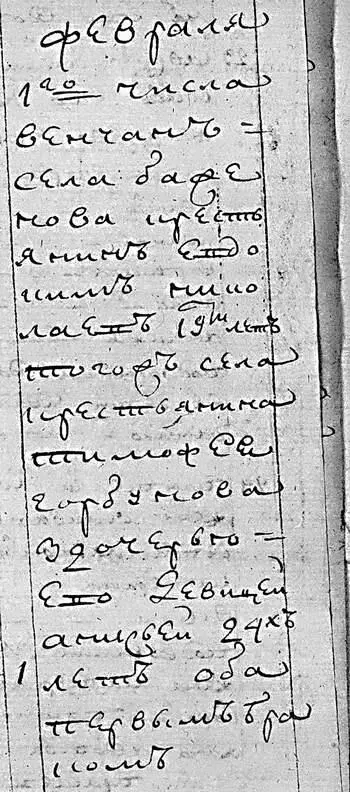 февраля
1го числа
венчанъ =
села баже
нова кресть
янинъ Евдо
кимъ нико
лаевъ 19ти летъ
тогожъ села
крестьянина
тимофея
горбунова
здочерью =
ево девицей
анисьей 24хъ
1 летъ оба
первымъ бра
комъ